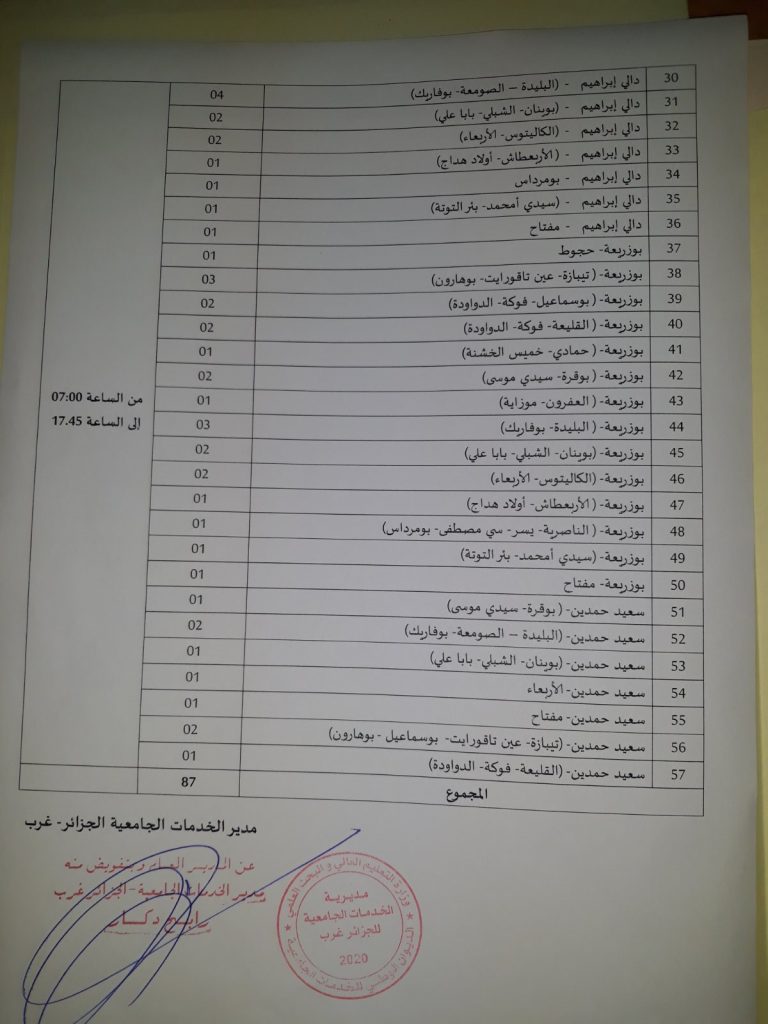 30 دالي إبراهيم - (البليدة – الصومعة- بوفاريك) 04
31 دالي إبراهيم - (بوينان- الشبلي- بابا علي) 02
32 دالي إبراهيم - (الكاليتوس- الأربعاء) 02
33 دالي إبراهيم - ( الأربعطاش- أولاد هداج) 01
34 دالي إبراهيم - بومرداس 01
35 دالي إبراهيم - (سيدي أمحمد- بئر التوتة) 01
36 دالي إبراهيم - مفتاح 01
37 بوزريعة- حجوط 01
38 بوزريعة- ( تيبازة- عين تاقورايت- بوهارون) 03
39 بوزريعة- ( بوسماعيل- فوكة- الدواودة) 02
40 بوزريعة- ( القليعة- فوكة- الدواودة) 02
41 بوزريعة- ( حمادي- خميس الخشنة) 01
42 بوزريعة- ( بوقرة- سيدي موسى) 02
43 بوزريعة- ( العفرون- موزاية) 01
44 بوزريعة- ( البليدة- بوفاريك) 03
45 بوزريعة- (بوينان- الشبلي- بابا علي) 02
46 بوزريعة- (الكاليتوس- الأربعاء) 02
47 بوزريعة- ( الأربعطاش- أولاد هداج) 01
48 بوزريعة- ( الناصرية- يسر- سي مصطفى- بومرداس) 01
49 بوزريعة- (سيدي أمحمد- بئر التوتة) 01
50 بوزريعة- مفتاح 01
51 سعيد حمدين- ( بوقرة- سيدي موسى) 01
52 سعيد حمدين- (البليدة – الصومعة- بوفاريك) 02
53 سعيد حمدين- (بوينان- الشبلي- بابا علي) 01
54 سعيد حمدين- الأربعاء 01
55 سعيد حمدين- مفتاح 01
56 سعيد حمدين- (تيبازة- عين تاقورايت- بوسماعيل - بوهارون) 02
57 سعيد حمدين- (القليعة- فوكة- الدواودة) 01
المجموع 87
من الساعة 07:00
إلى الساعة 17.45
مدير الخدمات الجامعية الجزائر- غرب
عن المدير العام وبتفويض منه
مدير الخدمات الجامعية-الجزائر غرب
رابح دكار
وزارة التعليم العالي و البحث العلمي
مديرية
الخدمات الجامعية
للجزائر غرب
2020
الديوان الوطني للخدمات الجامعية